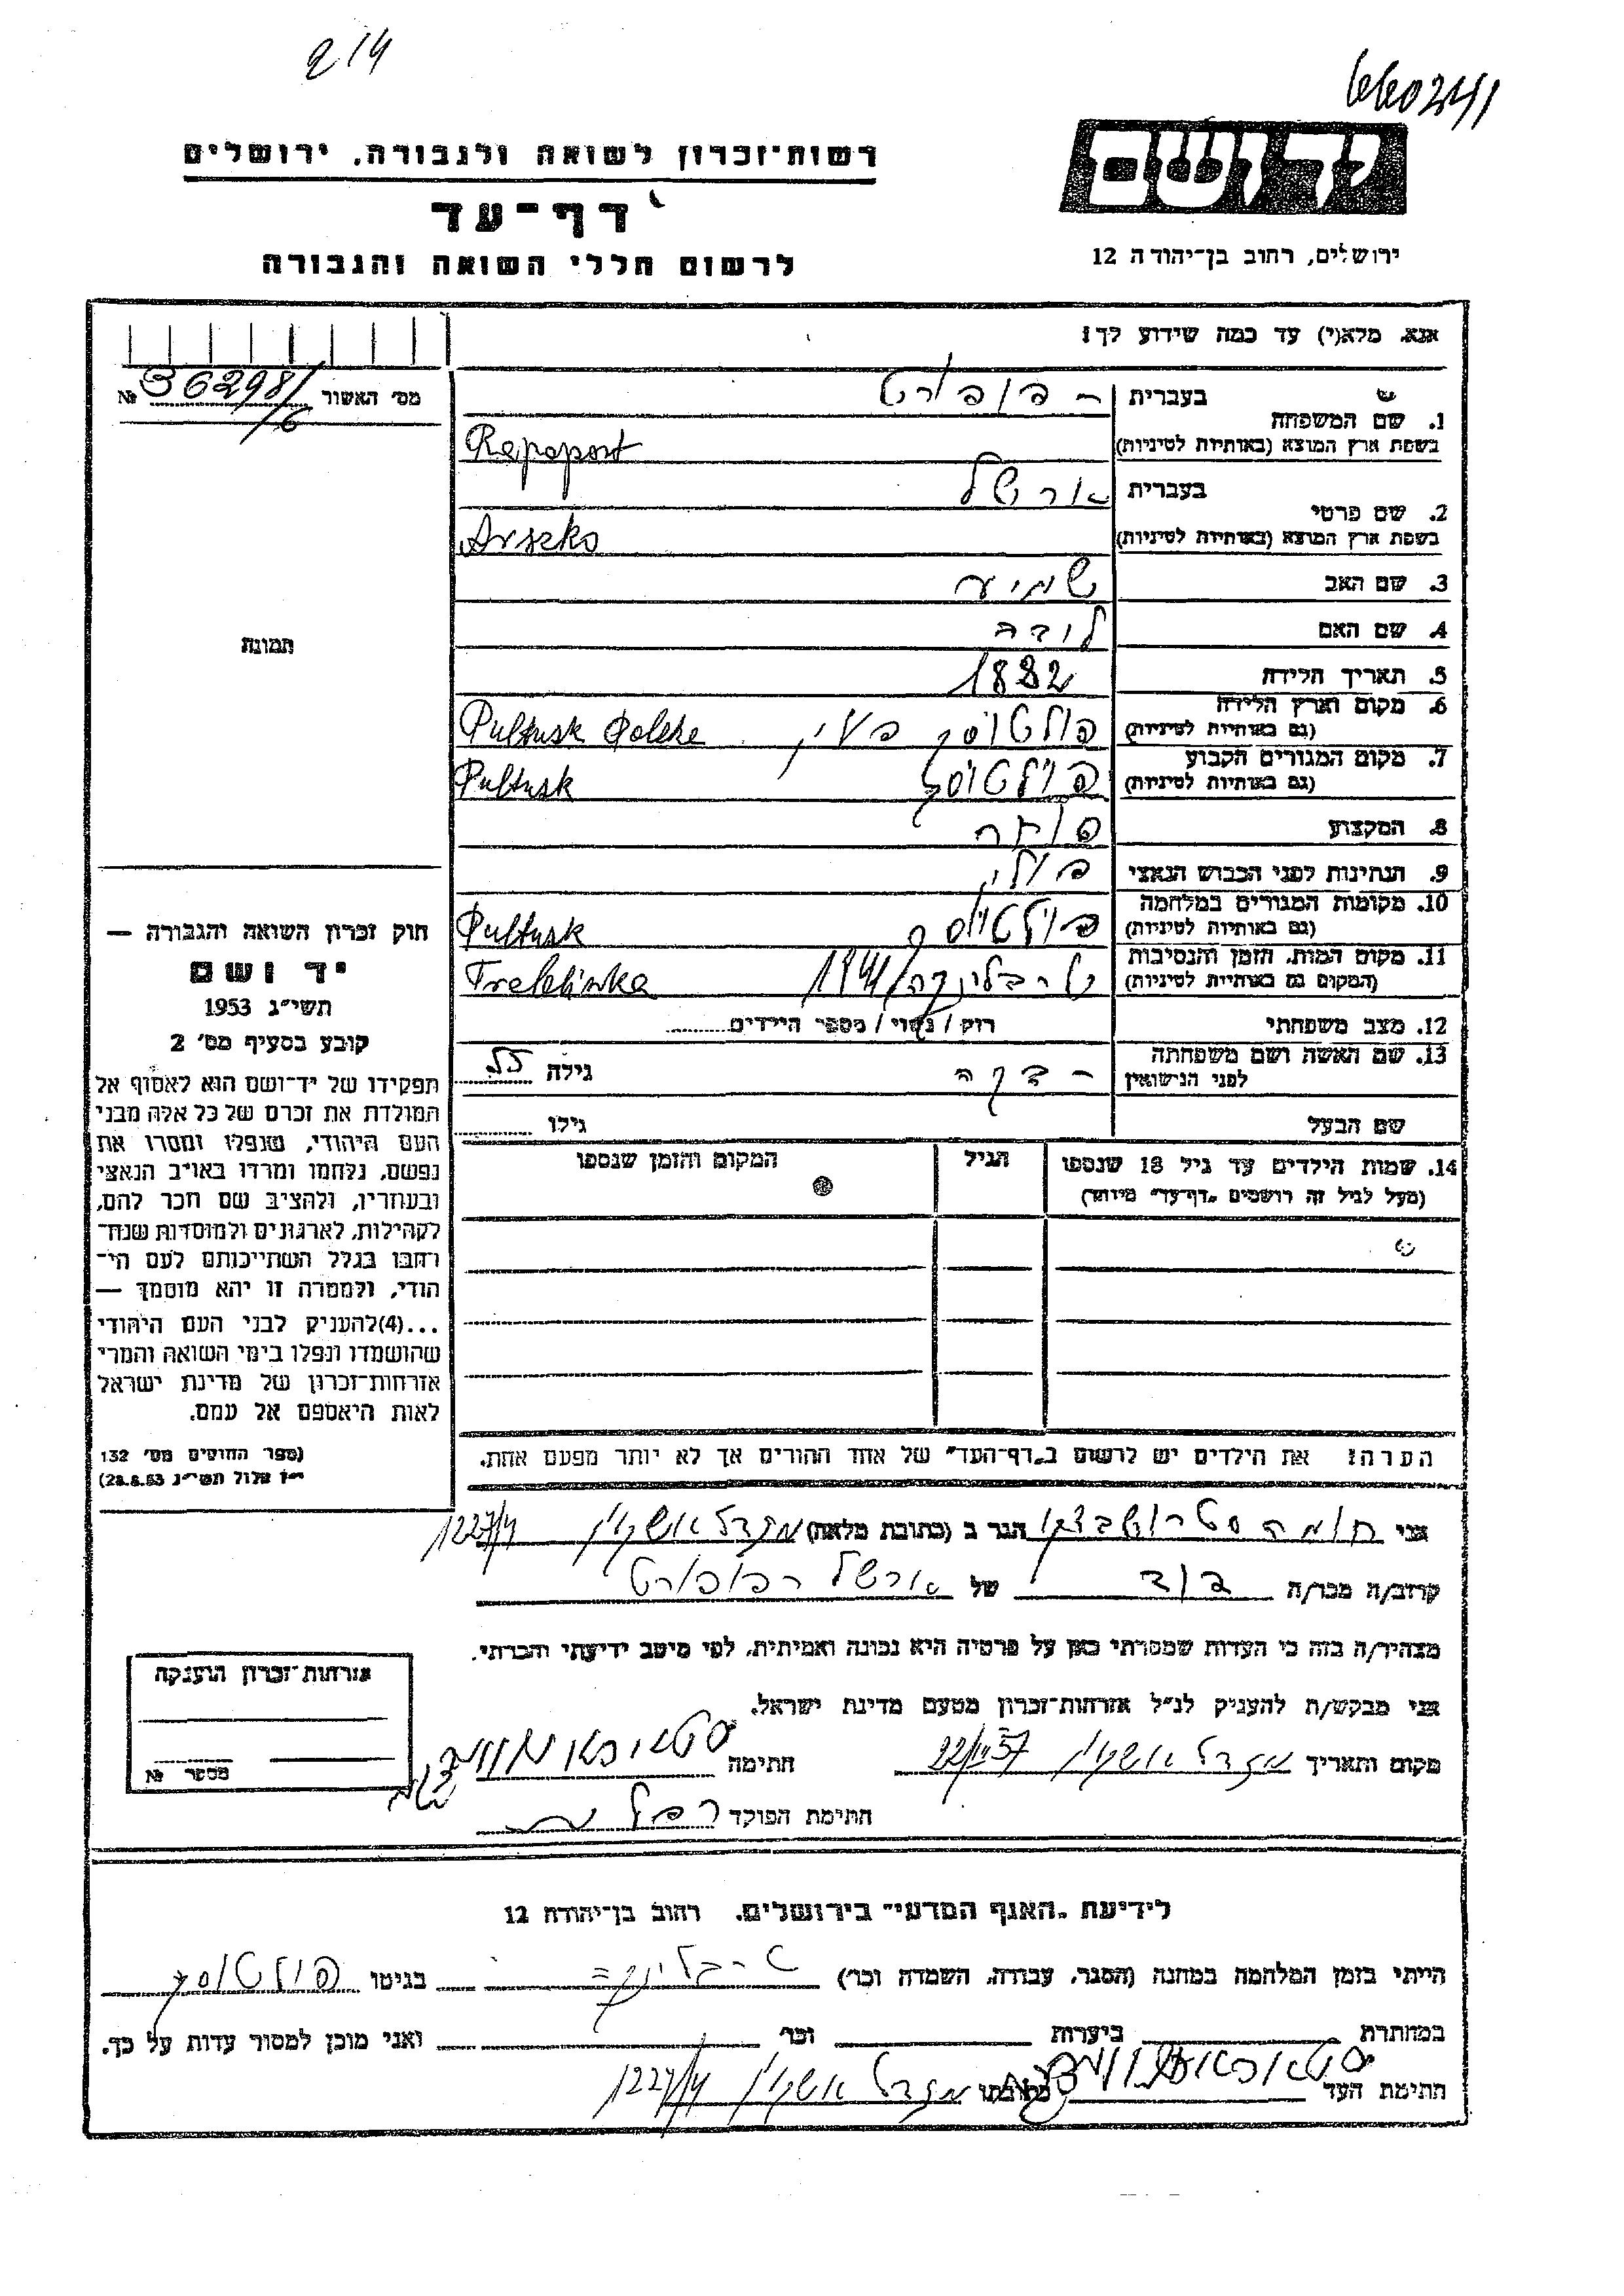 214
6602441
ידושם
רשות־זכרון לשואה ולגבורה, ירושלים
דף־עד
לרשום חללי השואה והגבורה
ירושלים, רחוב בן־יהודה 12
אנא, מלא(י) עד כמה שידוע לך!
מס׳ האשור 36298/6 №
תמונה
1. שם המשפחה
בעברית רפופורט
בשפת ארץ המוצא (באותיות לטיניות) Rapoport
2. שם פרטי
בעברית ארשל
בשפת ארץ המוצא (באותיות לטיניות) Arszko
3. שם האב שמיע
4. שם האם
5. תאריך הלידה 1882
6. מקום וארץ הלידה
(גם באותיות לטיניות) פולטוסק פולין Pultusk Polske
7. מקום המגורים הקבוע
(גם באותיות לטיניות) פולטוסק Pultusk
8. המקצוע סוחר
9. הנתינות לפני הכבוש הנאצי פולין
10. מקומות המגורים במלחמה
(גם באותיות לטיניות) פולטוסק Pultusk
11. מקום המות, הזמן והנסיבות
(המקום גם באותיות לטיניות) טרבלינקה 1941 Treblinka
12. מצב משפחתי רווק / נשוי / מספר הילדים
13. שם האשה ושם משפחתה
לפני הנישואין רבקה גילה 55
שם הבעל גילו
14. שמות הילדים עד גיל 18 שנספו
(מעל לגיל זה רושמים „דף־עד״ מיוחד)
הגיל
המקום והזמן שנספו
הערה: את הילדים יש לרשום ב„דף־העד״ של אחד ההורים אך לא יותר מפעם אחת.
חוק זכרון השואה והגבורה —
יד ושם
תשי״ג 1953
קובע בסעיף מס׳ 2
תפקידו של יד־ושם הוא לאסוף אל
המולדת את זכרם של כל אלה מבני
העם היהודי, שנפלו ומסרו את
נפשם, נלחמו ומרדו באויב הנאצי
ובעוזריו, ולהציב שם וזכר להם,
לקהילות, לארגונים ולמוסדות שנח־
רבו בגלל השתייכותם לעם הי־
הודי, ולמטרה זו יהא מוסמך —
...(4)להעניק לבני העם היהודי
שהושמדו ונפלו בימי השואה והמרי
אזרחות־זכרון של מדינת ישראל
לאות היאספם אל עמם.
(ספר החוקים מס׳ 132
י״ז אלול תשי״ג 28.8.53)
אני הגר ב (כתובת מלאה) מגדל אשקלון 1227/4
קרוב/ה מכר/ה של ארשל רפופורט
מצהיר/ה בזה כי העדות שמסרתי כאן על פרטיה היא נכונה ואמיתית, לפי מיטב ידיעתי והכרתי.
אני מבקש/ת להעניק לנ״ל אזרחות־זכרון מטעם מדינת ישראל.
מקום ותאריך מגדל אשקלון 22/IV 57 חתימה
חתימת הפוקד
אזרחות־זכרון הוענקה
מספר №
לידיעת „האגף המדעי״ בירושלים, רחוב בן־יהודה 12
הייתי בזמן המלחמה במחנה (הסגר, עבודה, השמדה וכו׳) טרבלינקה בגיטו פולטוסק
במחתרת ביערות וכו׳ ואני מוכן למסור עדות על כך.
חתימת העד כתובתו מגדל אשקלון 1227/4